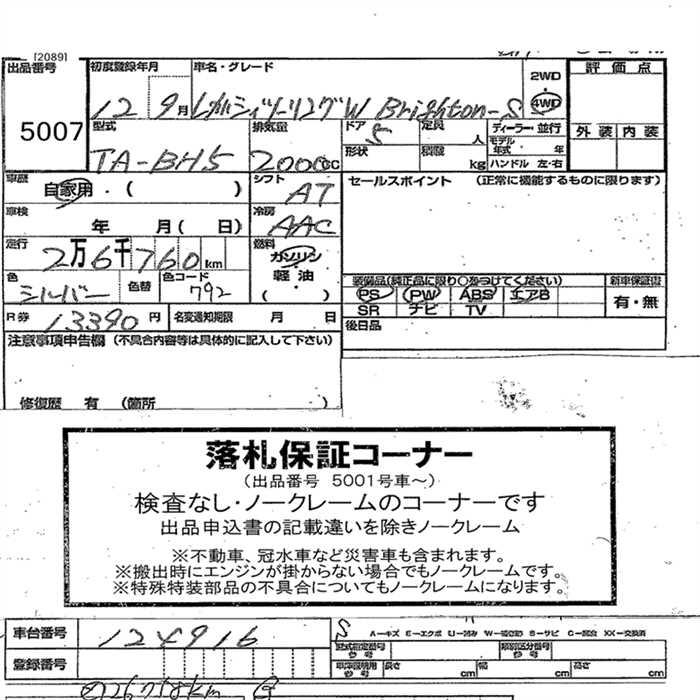 [2089]
出品番号 初度登録年月 車名・グレード 2WD 評価点
5007 12 9月 レガシィツーリングW Brighton-S 4WD
型式 排気量 ドア 定員 ディーラー・並行 外装 内装
TA-BH5 2000cc 5 人 モデル年式・ 年
形状 積載 kg ハンドル 左・右
車歴 自家用・( ) シフト AT セールスポイント (正常に機能するものに限ります)
車検 年 月( 日) 冷房 AAC
走行 2万6千760km 燃料 ガソリン
軽油
( )
色 シルバー 色替 色コード 792
装備品(純正品に限り〇をつけてください) 新車保証書
PS PW ABS エアB 有・無
SR ナビ TV
R券 13390円 名変通知期限 月 日 後日品
注意事項申告欄 (不具合内容等は具体的に記入して下さい)
修復歴 有 (箇所 )
落札保証コーナー
(出品番号 5001号車~)
検査なし・ノークレームのコーナーです
出品申込書の記載違いを除きノークレーム
※不動車、冠水車など災害車も含まれます。
※搬出時にエンジンが掛からない場合でもノークレームです。
※特殊特装部品の不具合についてもノークレームになります。
車台番号 124916 S A-キズ E-エクボ U-凹み S-サビ C-腐食 XX-交換済
型式指定番号 参考 類別区分番号 参考
登録番号 車体証明用 参考 長さ cm 幅 cm 高さ cm